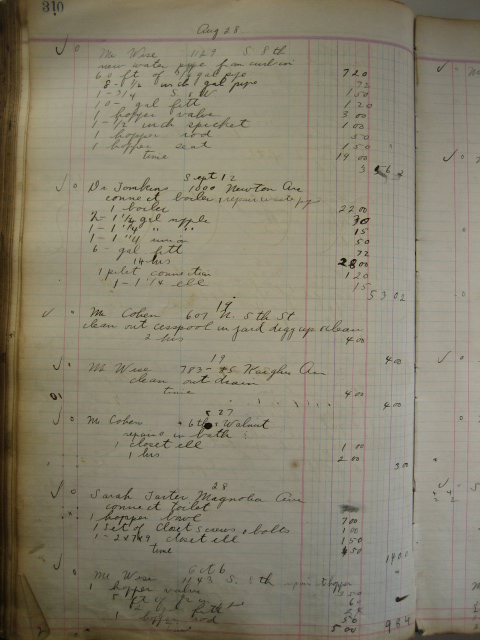 310
Aug 28
Mr Wise 1129 S 8th
new water pipe from curb in
60 ft of 3/4 gal pipe 7 20
8- 1 1/2 inch gal pipe 72
1- 3/4 S & W 1 50
10- gal fitt 1 20
1 hopper valve 3 00
1- 1/2 inch spicket 1 00
1 hopper rod 50
1 hopper seat 1 50
time 19 00
Sept 12
Dr Tomkins 1000 Newton Ave
connect boiler, repair waste pipe
1 boiler 22 00
2- 1 1/4 gal nipple 30
1- 1 1/4 " " 15
1- 1 " union 50
6- gal fitt 72
14 hrs 28 00
1 pilet connection 1 20
1- 1 1/4 ell 15
53 02
19
Mr Cohen 607 N. 5th St
clean out cesspool in yard digg up & clean
2 hrs 4 00
4 00
19
Mr Wise 783- Kaighn Ave
clean out drain
time 4 00
4 00
27
Mr Cohen 6th & Walnut
repairs in bath
1 closet ell 1 00
1 hrs 2 00
3 00
28
Sarah Tarter Magnolia Ave
connect toilet
1 hopper bowl 7 00
1 set of closet screws & bolts 1 00
1- 2x4x9 closet ell 1 50
time 4 50
14 00
Oct 6
Mr Wise 1143 S. 8th repair hopper
1 hopper valve 3 50
1 hopper rod
5 00
9 84